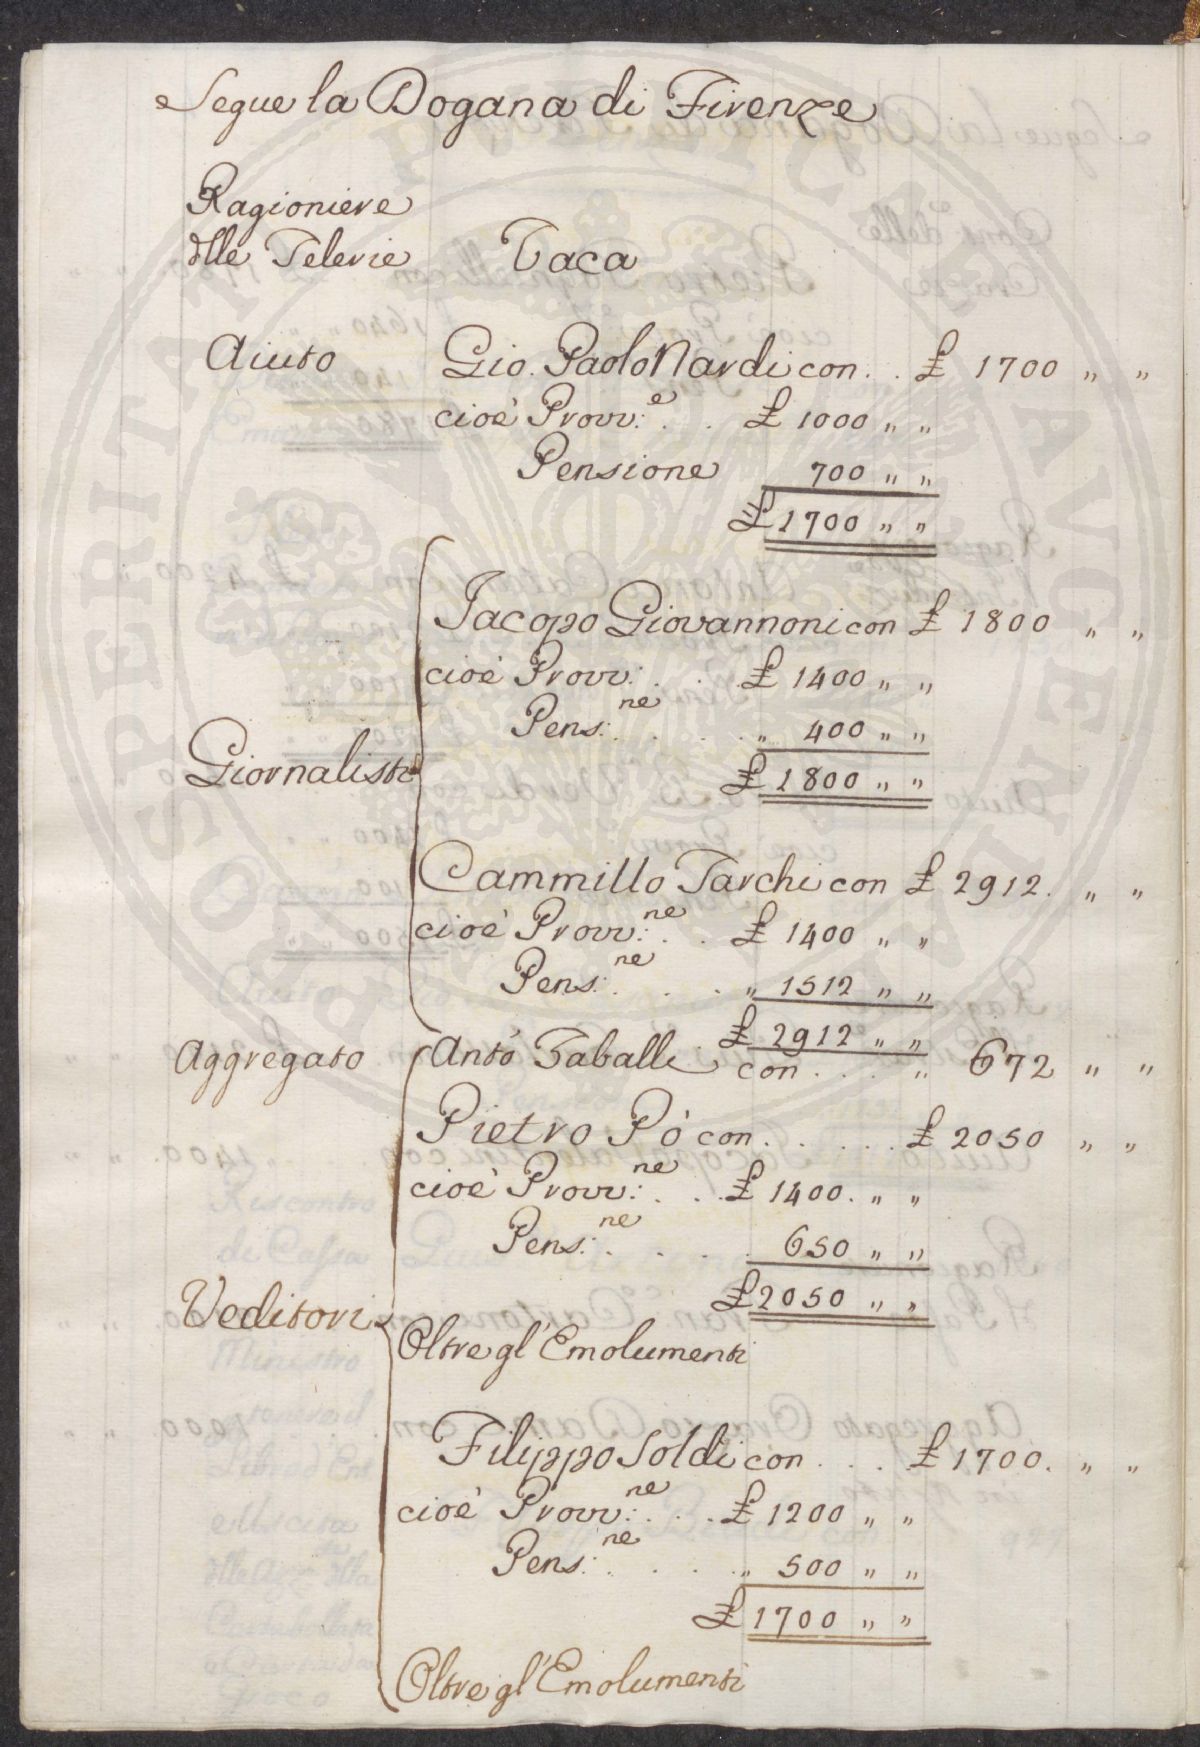 Segue la Dogana di Firenze
Ragioniere
dlle Telerie Vaca
Aiuto Gio. Paolo Nardi con . . £ 1700 " "
cioè Provv:e . . £ 1000 " "
Pensione 700 " "
£ 1700 " "
Jacopo Giovannoni con £ 1800 " "
cioè Provv: . . . £ 1400 " "
Pens:ne . . . . . " 400 " "
Giornalisti £ 1800 " "
Cammillo Tarchi con £ 2912. " "
cioè Provv:ne . . £ 1400 " "
Pens:ne . . . . " 1512 " "
£ 2912 " "
Aggregato Anto Taballi con . . . . " 672 " "
Pietro Pò con . . . . . £ 2050 " "
cioè Provv:ne . . . £ 1400. " "
Pens:ne . . . . . 650 " "
£ 2050 " "
Veditori
Oltre gl'Emolumenti
Filippo Soldi con . . . £ 1700. " "
cioè Provv:ne . . . £ 1200 " "
Pens:ne . . . . " 500 " "
£ 1700 " "
Oltre gl'Emolumenti